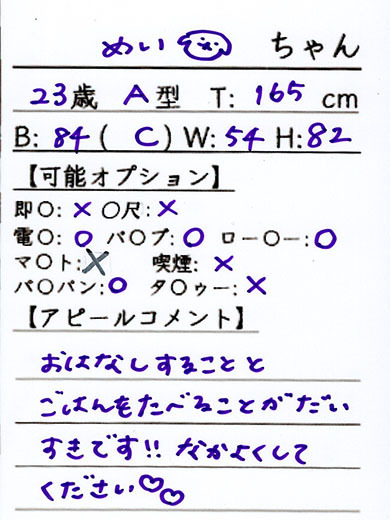 めい ちゃん
23歳 A型 T: 165 cm
B: 84 ( C ) W: 54 H: 82
【可能オプション】
即〇: × 〇尺: ×
電〇: 〇 バ〇ブ: 〇 ロー〇ー: 〇
マ〇ト: × 喫煙: ×
パ〇パン: 〇 タ〇ゥー: ×
【アピールコメント】
おはなしすることと
ごはんをたべることがだい
すきです!! なかよくして
ください♡♡